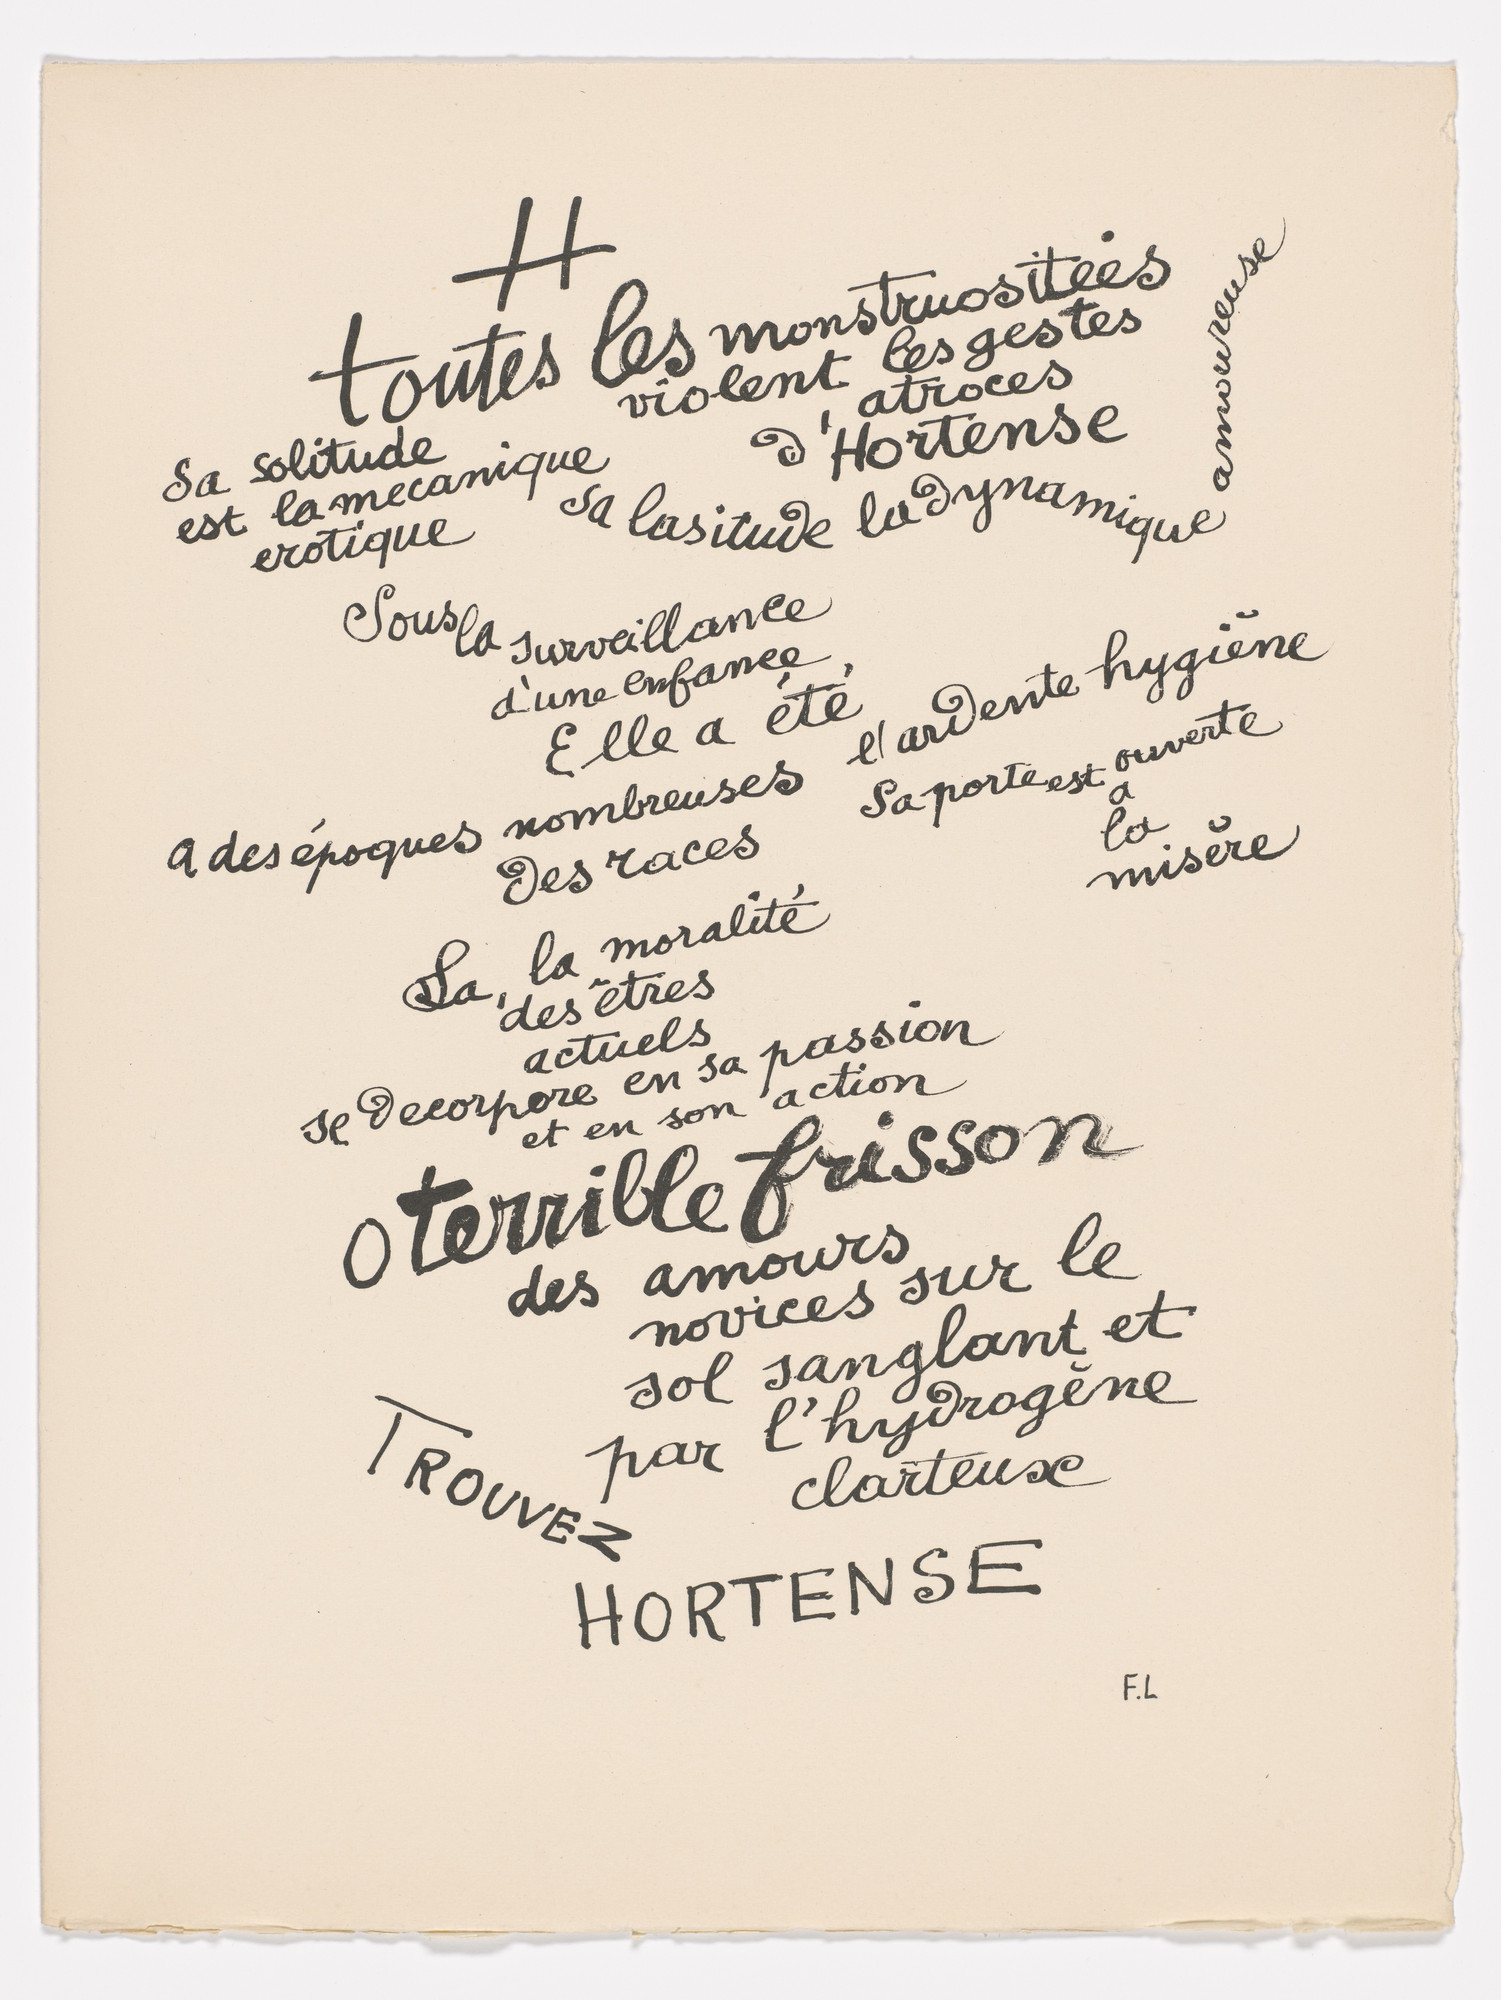 H
toutes les monstruositées
violent les gestes
atroces
d'Hortense
Sa solitude
est la mecanique
erotique
sa lasitude la dynamique
amoureuse
Sous la surveillance
d'une enfance
Elle a été,
a des époques nombreuses
l'ardente hygiĕne
des races
Sa porte est ouverte
a
la
misĕre
La, la moralité
des êtres
actuels
se decorpore en sa passion
et en son action
O terrible frisson
des amours
novices sur le
sol sanglant et
par l'hydrogĕne
clarteuse
TROUVEZ
HORTENSE
F.L